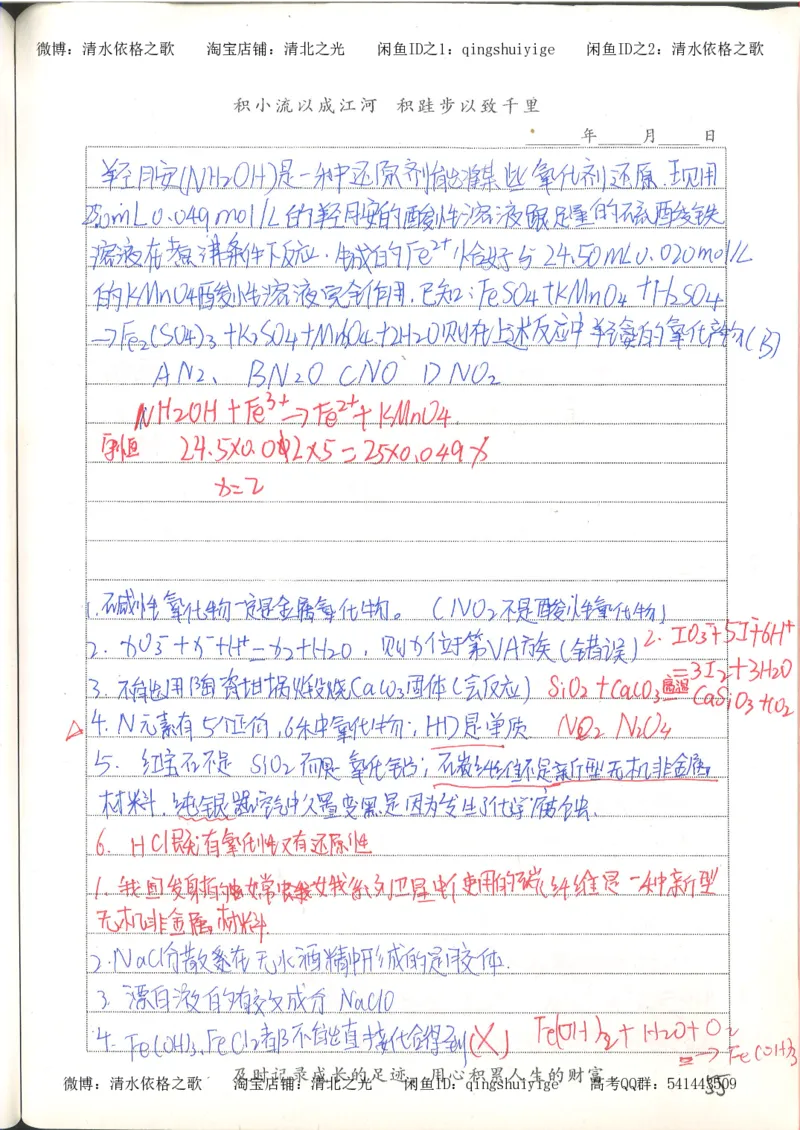 微博：清水依格之歌 淘宝店铺：清北之光 闲鱼ID之1：qingshuiyige 闲鱼ID之2：清水依格之歌
积小流以成江河 积跬步以致千里
年 月 日
羟胺(NH2OH)是一种还原剂能将某些氧化剂还原.现用
25.0mL0.049mol/L的羟胺的酸性溶液跟足量的硫酸铁
溶液在煮沸条件下反应.生成的Fe2+恰好与24.50mL0.020mol/L
的KMnO4酸性溶液完全作用.已知:FeSO4+KMnO4+H2SO4
→Fe2(SO4)3+K2SO4+MnSO4+2H2O则在上述反应中羟氨的氧化产物(B)
A N2、 B N2O C NO D NO2
NH2OH+Fe3+→Fe2++KMnO4.
24.5×0.02×5=25×0.049x
x=2
1.碱性氧化物一定是金属氧化物。(NO2不是酸性氧化物)
2. xO3-+x-+H+=x2+H2O,则x位于第VA族(错误) 2. IO3-+5I-+6H+
=3I2+3H2O
3.不能用陶瓷坩埚煅烧CaCO3固体(会反应) SiO2+CaCO3=高温 CaSiO3+CO2
△4.N元素有5个正价,6种氧化物;HD是单质 NO2 N2O4
5.红宝石不是SiO2而是氧化铝;石炭纤维不是新型无机非金属
材料.纯银器空气中久置变黑是因为发生了化学腐蚀.
6. HCl既有氧化性又有还原性
1.我国发射的嫦娥系列卫星中使用的碳纤维是一种新型
无机非金属材料.
2.NaCl分散系在无水酒精中形成的是胶体.
3.漂白液有效成分NaClO
4. Fe(OH)3、FeCl2都不能直接化合得到(X) Fe(OH)2+H2O+O2
=→Fe(OH)3
及时记录成长的足迹 用心积累人生的财富
微博：清水依格之歌 淘宝店铺：清北之光 闲鱼ID：qingshuiyige 高考QQ群：541443509
55